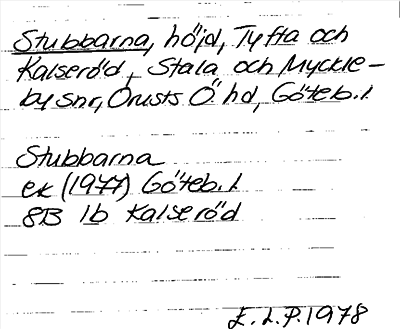 Stubbarna, höjd, Tyfta och
Kalseröd, Stala och Myckle-
by snr, Orusts Ö. hd, Göteb. l.
Stubbarna
ek (1977) Göteb. l.
8B 1b Kalseröd
E. L. P. 1978